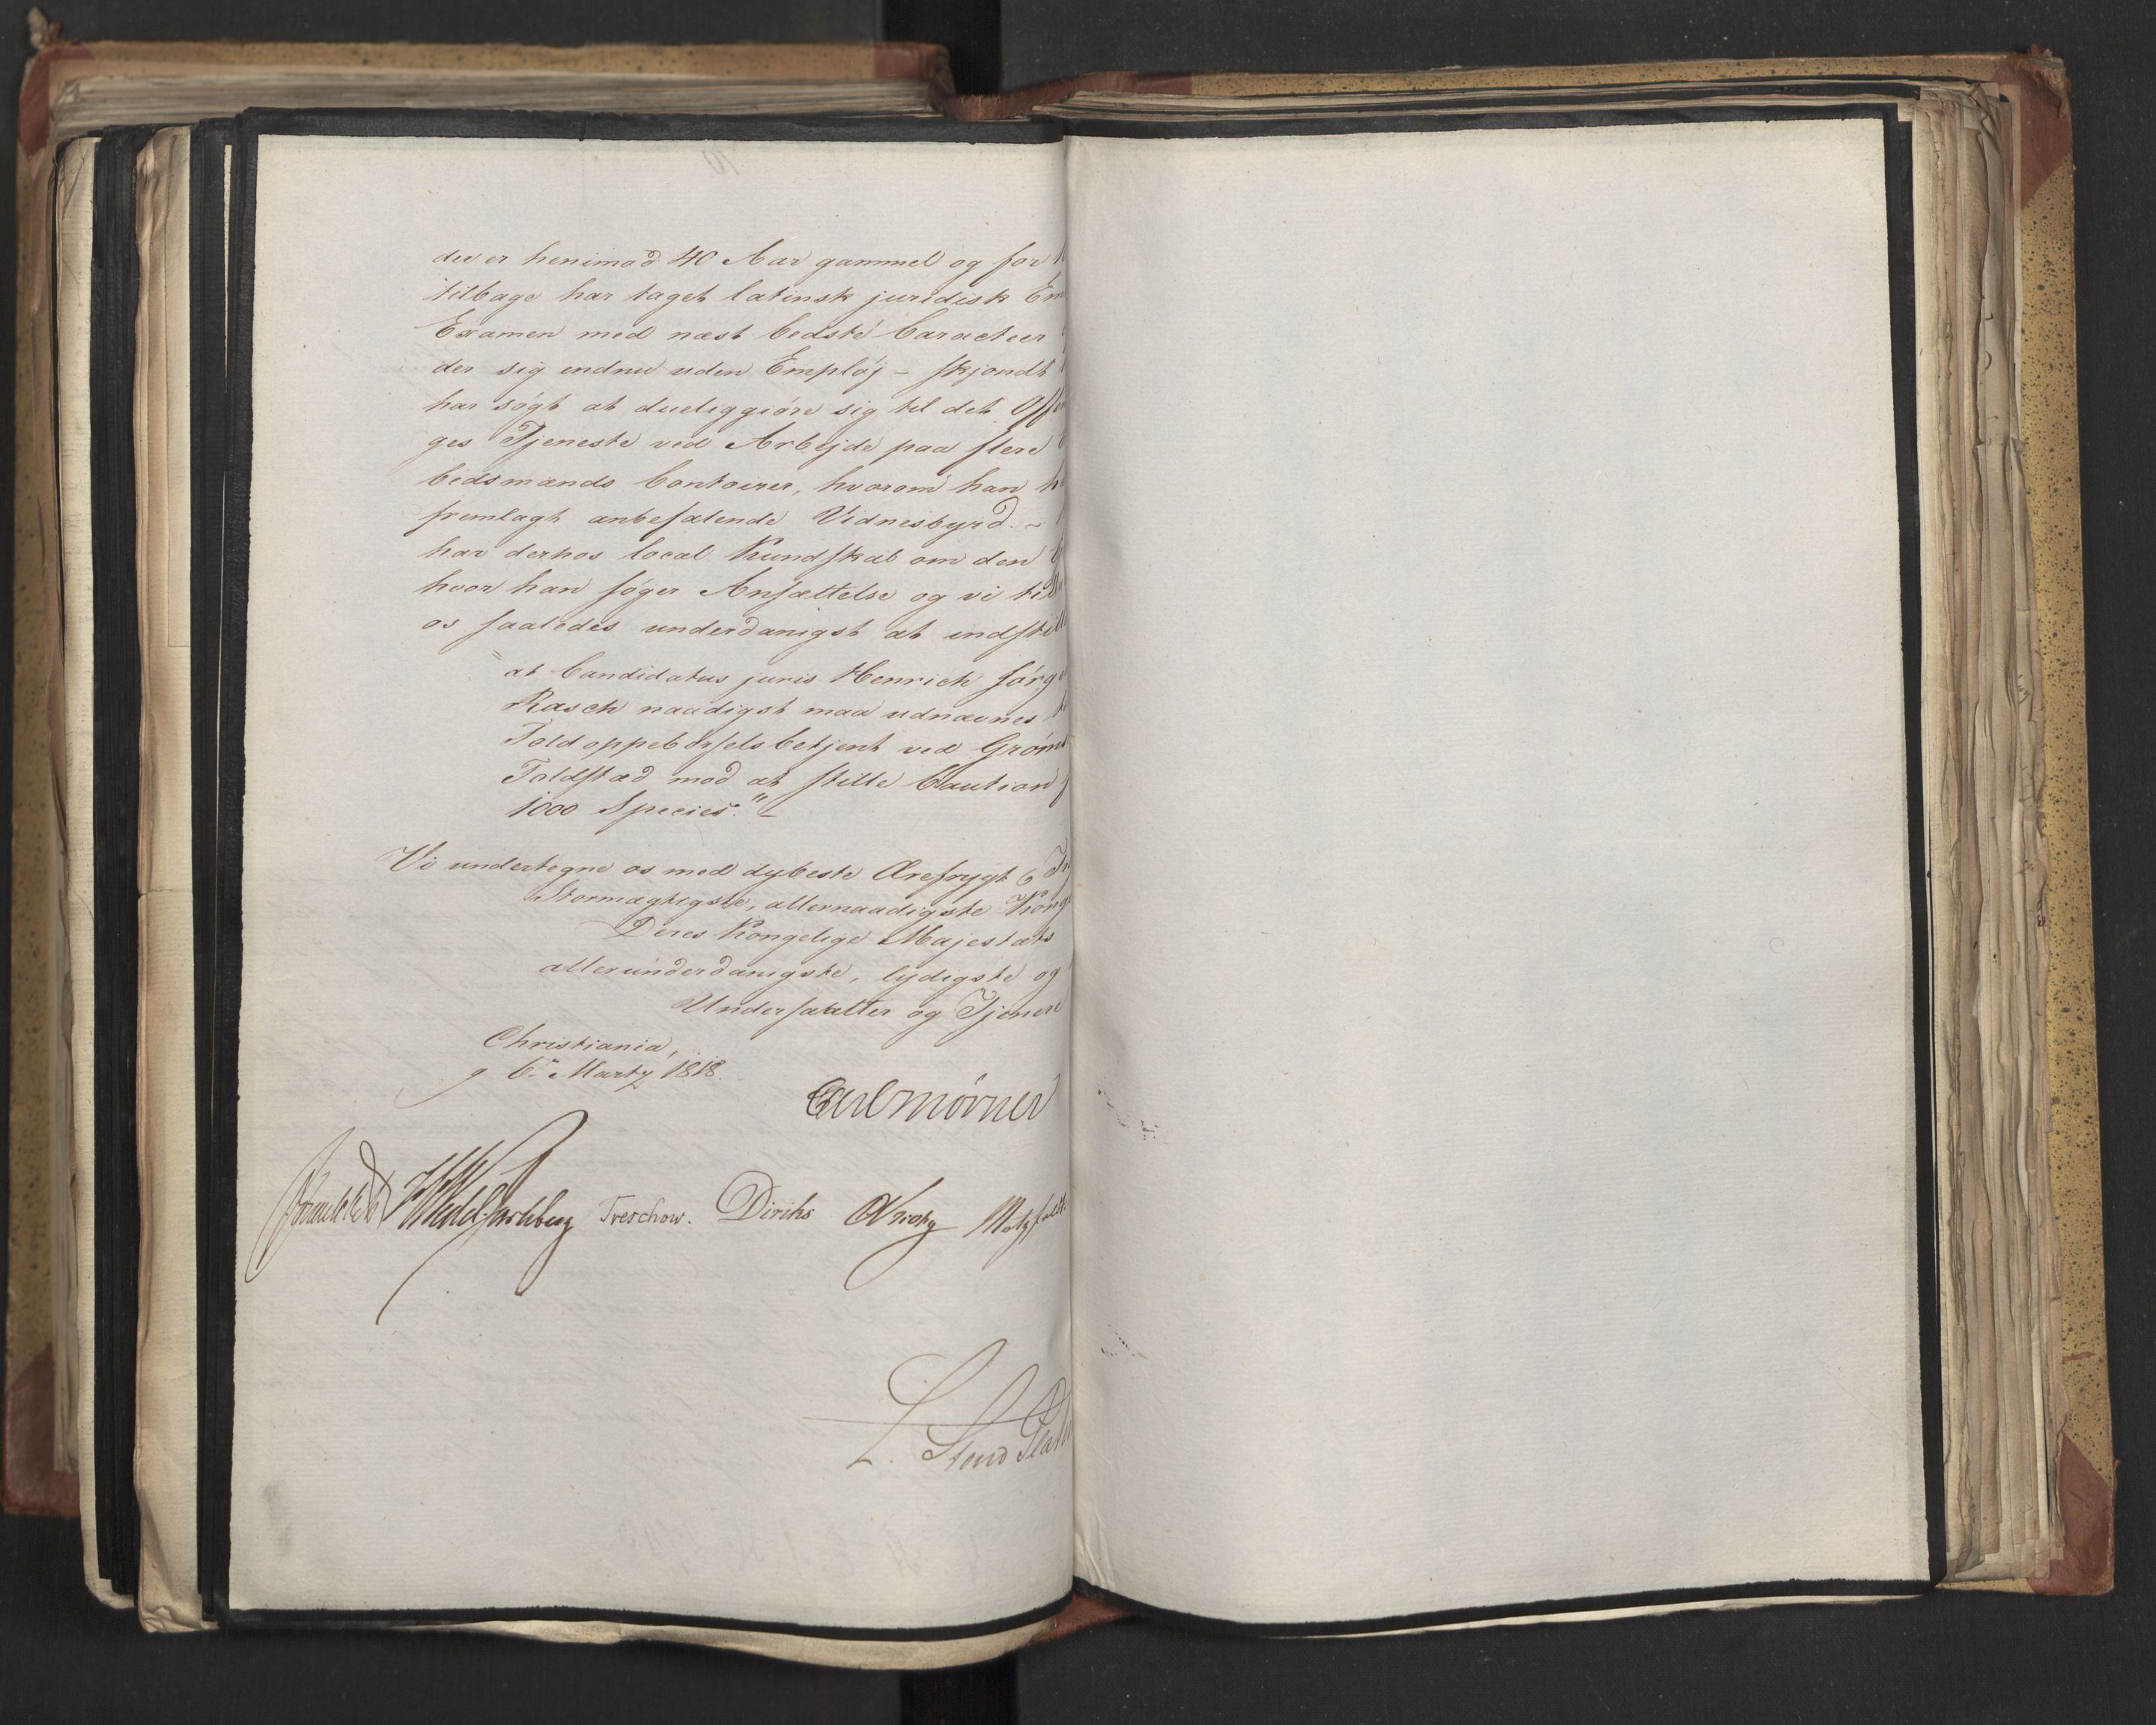 der er henimod 40 Aar gammel og for
tilbage har taget latinsk juridisk Em
Examen med næst bedste Caracteer
der sig endnu uden Emploj – skjøndt
har søgt at dueliggiøre sig til det Offen
ges Tjeneste ved Arbejde paa flere
bedsmands Contoirer, hvorom han h
fremlagt anbefalende Vidnesbyrd. ~
har derhos local Kundskab om den
hvor han søger Ansættelse og vi til
os saaledes underdanigst at indstill
"at Candidatus juris Henrich Jørge
Rasch naadigst maa udnævnes
Toldoppebørselsbetjent ved Grøms
Toldsted mod at stille Caution
1000 Species."
Vi undertegne os med dybeste Ærefrygt
Stormægtigste, allernaadigste Kong
Deres Kongelige Majestæts
allerunderdanigste, lydigste og
Undersaatter og Tjenere
Christiania,
d 6te Marty 1818.
Carl Mörner
Wedel Jarlsberg Treschow. Diriks Krohg Motzfeldt.
L. Stoud Plat